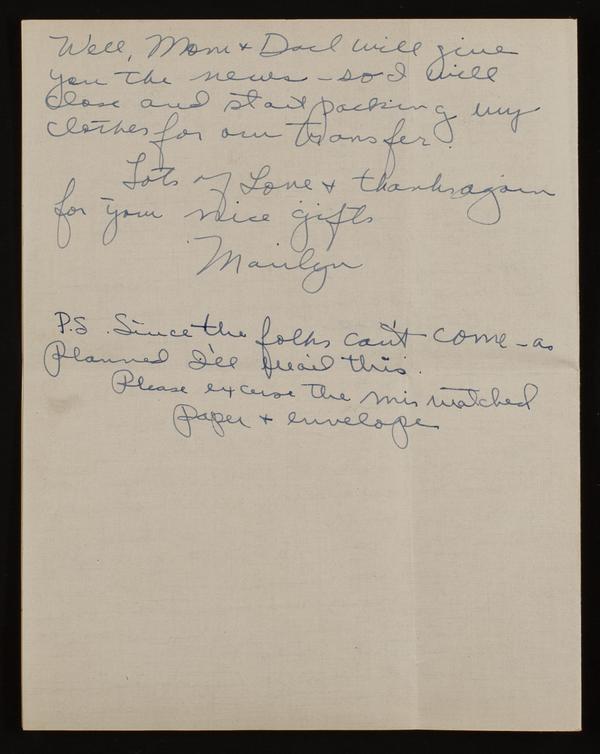 Well, Mom & Dad will give
you the news - so I will
close and start packing my
clothes for our transfer.
Lots of Love & thanks again
for your nice gifts
Marilyn
P.S. Since the folks can't come - as
planned I'll mail this.
Please excuse the mis matched
paper & envelope